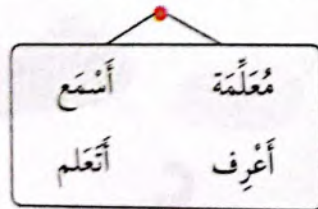 مُعَلِّمَة أَسْمَع
أَعْرِف أَتَعَلم